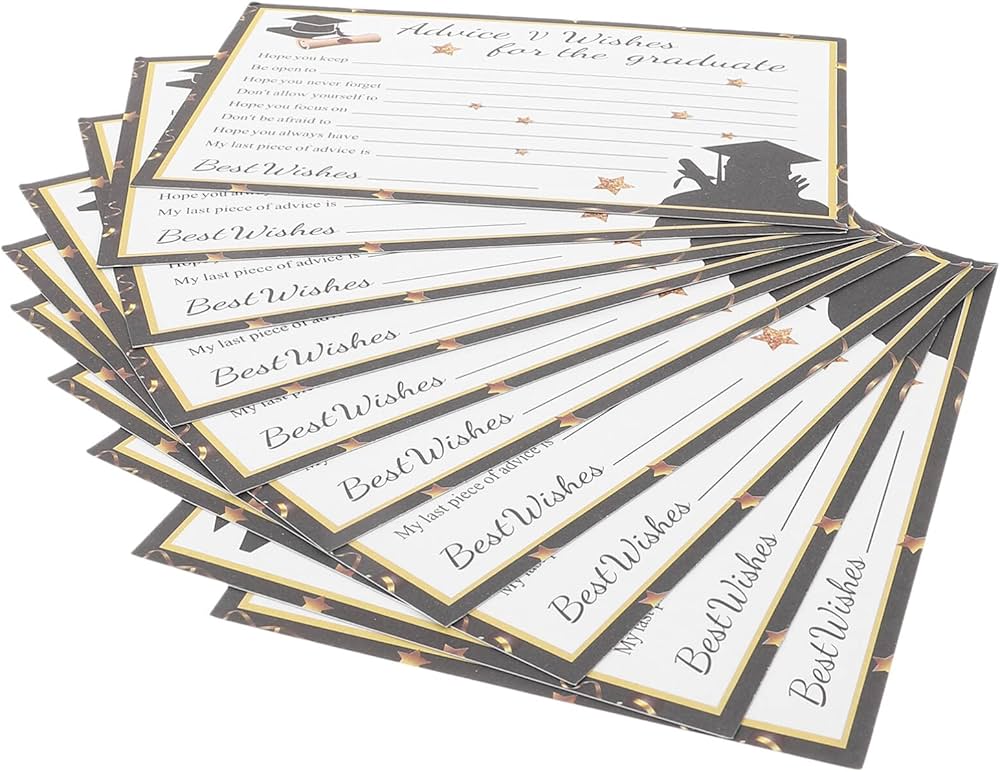 Advice V Wishes
for the graduate
Hope you keep
Be open to
Hope you never forget
Don't allow yourself to
Hope you focus on
Don't be afraid to
Hope you always have
My last piece of advice is
Best Wishes
Hope you
My last piece of advice is
Best Wishes
My last piece of advice is
Best Wishes
My last piece of
Best Wishes
Best Wishes
Best Wishes
My last piece of advice is
Best Wishes
My
Best Wishes
My last
Best Wishes
Best Wishes